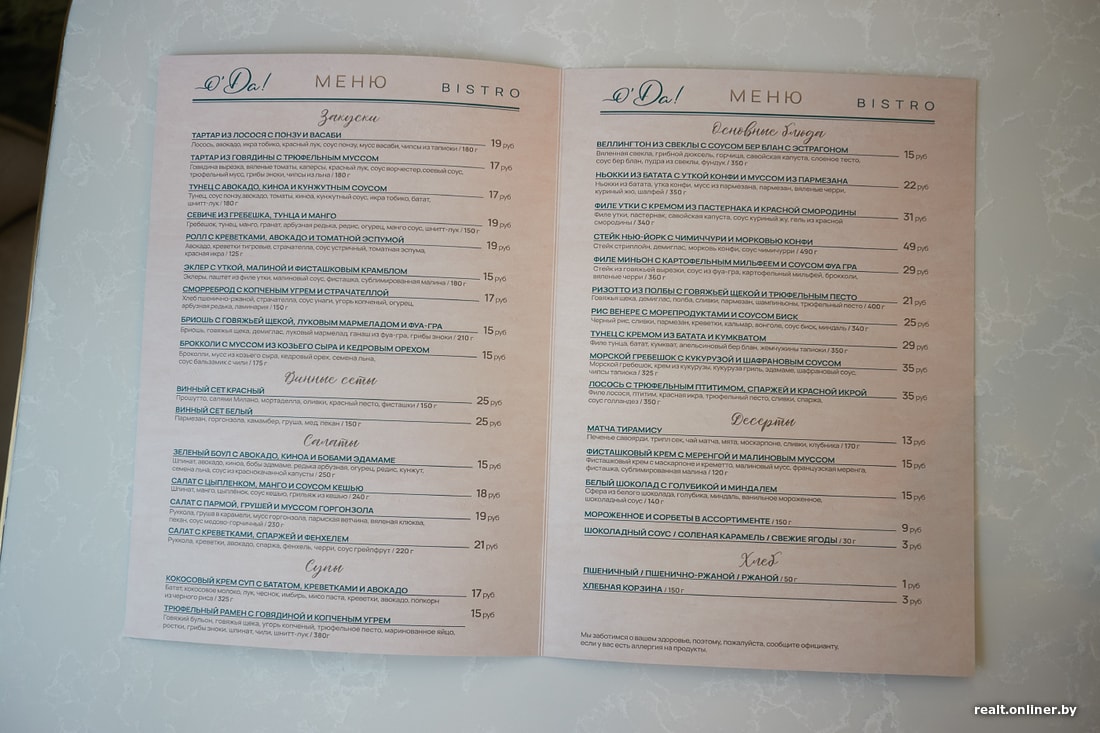 O'Da! МЕНЮ BISTRO
Закуски
ТАРТАР ИЗ ЛОСОСЯ С ПОНЗУ И ВАСАБИ 19 руб
Лосось, авокадо, икра тобико, красный лук, соус понзу, мусс васаби, чипсы из тапиоки / 180 г
ТАРТАР ИЗ ГОВЯДИНЫ С ТРЮФЕЛЬНЫМ МУССОМ 17 руб
Говядина вырезка, вяленые томаты, каперсы, красный лук, соус ворчестер, соевый соус,
трюфельный мусс, грибы эноки, чипсы из льна / 180 г
ТУНЕЦ С АВОКАДО, КИНОА И КУНЖУТНЫМ СОУСОМ 17 руб
Тунец, соус понзу, авокадо, томаты, киноа, кунжутный соус, икра тобико, батат,
шнитт-лук / 180 г
СЕВИЧЕ ИЗ ГРЕБЕШКА, ТУНЦА И МАНГО 19 руб
Гребешок, тунец, манго, гранат, арбузная редька, редис, огурец, манго соус, шнитт-лук / 150 г
РОЛЛ С КРЕВЕТКАМИ, АВОКАДО И ТОМАТНОЙ ЭСПУМОЙ 19 руб
Авокадо, креветки тигровые, страчателла, соус устричный, томатная эспума,
красная икра / 125 г
ЭКЛЕР С УТКОЙ, МАЛИНОЙ И ФИСТАШКОВЫМ КРАМБЛОМ 15 руб
Эклеры, паштет из филе утки, малиновый соус, фисташка, сублимированная малина / 180 г
СМОРРЕБРОД С КОПЧЕНЫМ УГРЕМ И СТРАЧАТЕЛЛОЙ 17 руб
Хлеб пшенично-ржаной, страчателла, соус унаги, угорь копченый, огурец,
арбузная редька, ламинария / 150 г
БРИОШЬ С ГОВЯЖЬЕЙ ЩЕКОЙ, ЛУКОВЫМ МАРМЕЛАДОМ И ФУА-ГРА 15 руб
Бриошь, говяжья щека, демиглас, луковый мармелад, ганаш из фуа-гра, грибы эноки / 210 г
БРОККОЛИ С МУССОМ ИЗ КОЗЬЕГО СЫРА И КЕДРОВЫМ ОРЕХОМ 15 руб
Брокколи, мусс из козьего сыра, кедровый орех, семена льна,
соус бальзамик с чили / 175 г
Винные сеты
ВИННЫЙ СЕТ КРАСНЫЙ 25 руб
Прошутто, салями Милано, мортаделла, оливки, красный песто, фисташки / 150 г
ВИННЫЙ СЕТ БЕЛЫЙ 25 руб
Пармезан, горгонзола, камамбер, груша, мед, пекан / 150 г
Салаты
ЗЕЛЕНЫЙ БОУЛ С АВОКАДО, КИНОА И БОБАМИ ЭДАМАМЕ 15 руб
Шпинат, авокадо, киноа, бобы эдамаме, редька арбузная, огурец, редис, кунжут,
семена льна, соус из краснокачанной капусты / 250 г
САЛАТ С ЦЫПЛЕНКОМ, МАНГО И СОУСОМ КЕШЬЮ 18 руб
Шпинат, манго, цыплёнок, соус кешью, грильяж из кешью / 240 г
САЛАТ С ПАРМОЙ, ГРУШЕЙ И МУССОМ ГОРГОНЗОЛА 19 руб
Руккола, груша в карамели, мусс горгонзола, пармская ветчина, вяленая клюква,
пекан, соус медово-горчичный / 230 г
САЛАТ С КРЕВЕТКАМИ, СПАРЖЕЙ И ФЕНХЕЛЕМ 21 руб
Руккола, креветки, авокадо, спаржа, фенхель, черри, соус грейпфрут / 220 г
Супы
КОКОСОВЫЙ КРЕМ СУП С БАТАТОМ, КРЕВЕТКАМИ И АВОКАДО 17 руб
Батат, кокосовое молоко, лук, чеснок, имбирь, мисо паста, креветки, авокадо, попкорн
из черного риса / 325 г
ТРЮФЕЛЬНЫЙ РАМЕН С ГОВЯДИНОЙ И КОПЧЕНЫМ УГРЕМ 15 руб
Говяжий бульон, говяжья щека, угорь копченый, трюфельное песто, маринованное яйцо,
ростки, грибы эноки, шпинат, чили, шнитт-лук / 380г
O'Da! МЕНЮ BISTRO
Основные блюда
ВЕЛЛИНГТОН ИЗ СВЕКЛЫ С СОУСОМ БЕР БЛАН С ЭСТРАГОНОМ 15 руб
Вяленная свекла, грибной дюксель, горчица, савойская капуста, слоеное тесто,
соус бер блан, пудра из свеклы, фундук / 350 г
НЬОККИ ИЗ БАТАТА С УТКОЙ КОНФИ И МУССОМ ИЗ ПАРМЕЗАНА 22 руб
Ньокки из батата, утка конфи, мусс из пармезана, пармезан, вяленые черри,
куриный жю, шалфей / 350 г
ФИЛЕ УТКИ С КРЕМОМ ИЗ ПАСТЕРНАКА И КРАСНОЙ СМОРОДИНЫ 31 руб
Филе утки, пастернак, савойская капуста, соус куриный жу, гель из красной
смородины / 340 г
СТЕЙК НЬЮ-ЙОРК С ЧИМИЧУРРИ И МОРКОВЬЮ КОНФИ 49 руб
Стейк стриплойн, демиглас, морковь конфи, соус чимичурри / 490 г
ФИЛЕ МИНЬОН С КАРТОФЕЛЬНЫМ МИЛЬФЕЕМ И СОУСОМ ФУА ГРА 29 руб
Стейк из говяжьей вырезки, соус из фуа-гра, картофельный мильфей, брокколи,
вяленые черри / 360 г
РИЗОТТО ИЗ ПОЛБЫ С ГОВЯЖЬЕЙ ЩЕКОЙ И ТРЮФЕЛЬНЫМ ПЕСТО 21 руб
Говяжья щека, демиглас, полба, сливки, пармезан, шампиньоны, трюфельный песто / 400 г
РИС ВЕНЕРЕ С МОРЕПРОДУКТАМИ И СОУСОМ БИСК 25 руб
Черный рис, сливки, пармезан, креветки, кальмар, вонголе, соус биск, миндаль / 340 г
ТУНЕЦ С КРЕМОМ ИЗ БАТАТА И КУМКВАТОМ 29 руб
Филе тунца, батат, кумкват, апельсиновый бер блан, жемчужины тапиоки / 350 г
МОРСКОЙ ГРЕБЕШОК С КУКУРУЗОЙ И ШАФРАНОВЫМ СОУСОМ 35 руб
Морской гребешок, крем из кукурузы, кукуруза гриль, эдамаме, шафрановый соус,
чипсы тапиока / 325 г
ЛОСОСЬ С ТРЮФЕЛЬНЫМ ПТИТИМОМ, СПАРЖЕЙ И КРАСНОЙ ИКРОЙ 35 руб
Филе лосося, птитим, красная икра, трюфельный песто, сливки, спаржа,
соус голландез / 350 г
Десерты
МАТЧА ТИРАМИСУ 13 руб
Печенье савоярди, трипл сек, чай матча, мята, маскарпоне, сливки, клубника / 170 г
ФИСТАШКОВЫЙ КРЕМ С МЕРЕНГОЙ И МАЛИНОВЫМ МУССОМ 15 руб
Фисташковый крем с маскарпоне и креметто, малиновый мусс, французская меренга,
фисташка, сублимированная малина / 120 г
БЕЛЫЙ ШОКОЛАД С ГОЛУБИКОЙ И МИНДАЛЕМ 15 руб
Сфера из белого шоколада, голубика, миндаль, ванильное мороженное,
шоколадный соус / 140 г
МОРОЖЕННОЕ И СОРБЕТЫ В АССОРТИМЕНТЕ / 150 г 9 руб
ШОКОЛАДНЫЙ СОУС / СОЛЕНАЯ КАРАМЕЛЬ / СВЕЖИЕ ЯГОДЫ / 30 г 3 руб
Хлеб
ПШЕНИЧНЫЙ / ПШЕНИЧНО-РЖАНОЙ / РЖАНОЙ / 50 г 1 руб
ХЛЕБНАЯ КОРЗИНА / 150 г 3 руб
Мы заботимся о вашем здоровье, поэтому, пожалуйста, сообщите официанту,
если у вас есть аллергия на продукты.
realt.onliner.by